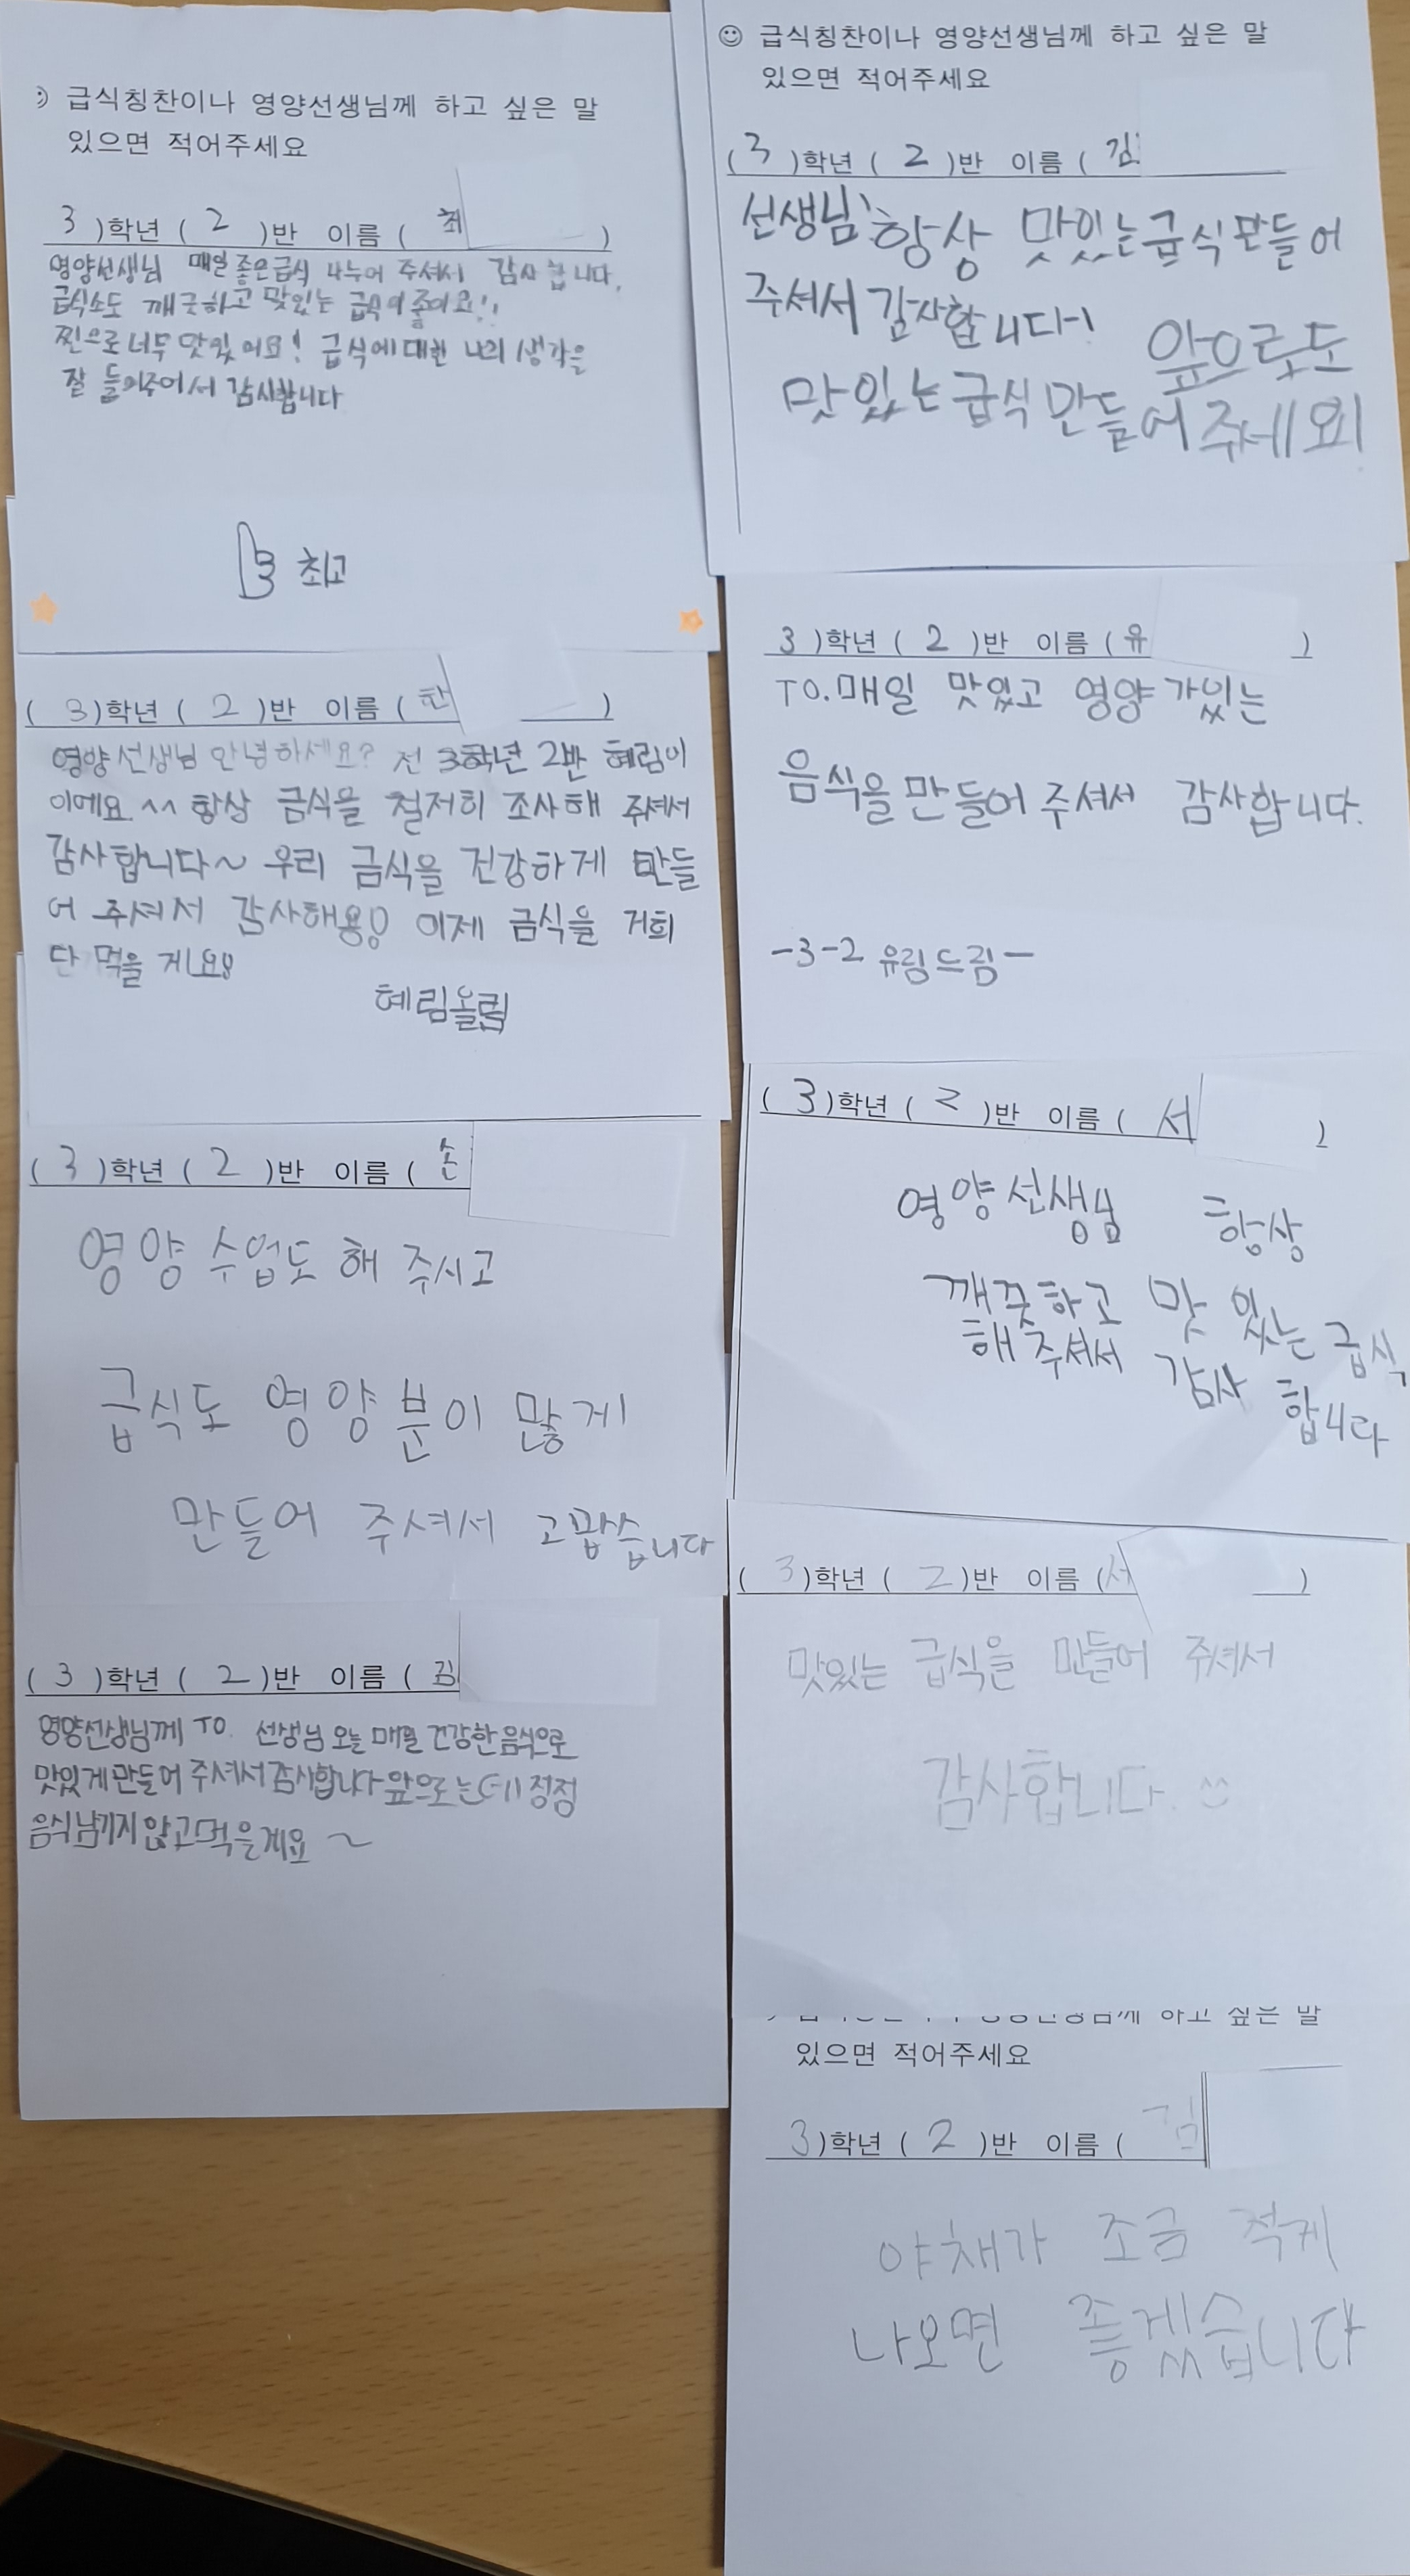 급식칭찬이나 영양선생님께 하고 싶은 말
있으면 적어주세요
3 )학년 ( 2 )반 이름 ( 최 )
영양선생님 매일 좋은급식 나누어 주셔서 감사합니다.
급식소도 깨긋하고 맛있는 급식이 좋아요!!
찐으로 너무 맛있어요! 급식에 대한 나의 생각을
잘 들어주어서 감사합니다
최고
( 3 )학년 ( 2 )반 이름 ( 한 )
영양선생님 안녕하세요? 전 3학년 2반 혜림이
이에요 ^^ 항상 급식을 철저히 조사해 주셔서
감사합니다~ 우리 급식을 건강하게 만들
어 주셔서 감사해용! 이제 급식을 거희
다 먹을 게요!
혜림올림
( 3 )학년 ( 2 )반 이름 ( 손
영양 수업도 해 주시고
급식도 영양분이 많게
만들어 주셔서 고맙습니다
( 3 )학년 ( 2 )반 이름 ( 김
영양선생님께 TO. 선생님 오늘 매일 건강한 음식으로
맛있게 만들어 주셔서 감사합니다 앞으로는
음식 남기지 않고 먹을게요 ~
☺ 급식칭찬이나 영양선생님께 하고 싶은 말
있으면 적어주세요
( 3 )학년 ( 2 )반 이름 ( 김
선생님 항상 맛있는 급식 만들어
주셔서 감사합니다! 앞으로도
맛있는 급식 만들어 주세요!
3 )학년 ( 2 )반 이름 ( 유 )
TO. 매일 맛있고 영양가있는
음식을 만들어 주셔서 감사합니다.
-3-2 유림드림-
( 3 )학년 ( 2 )반 이름 ( 서 )
영양선생님 항상
깨끗하고 맛있는 급식
해주셔서 감사합니다
( 3 )학년 ( 2 )반 이름 ( 서 )
맛있는 급식을 만들어 주셔서
감사합니다. ☺
하고 싶은 말
있으면 적어주세요
3 )학년 ( 2 )반 이름 ( 김
야채가 조금 적게
나오면 좋겠습니다